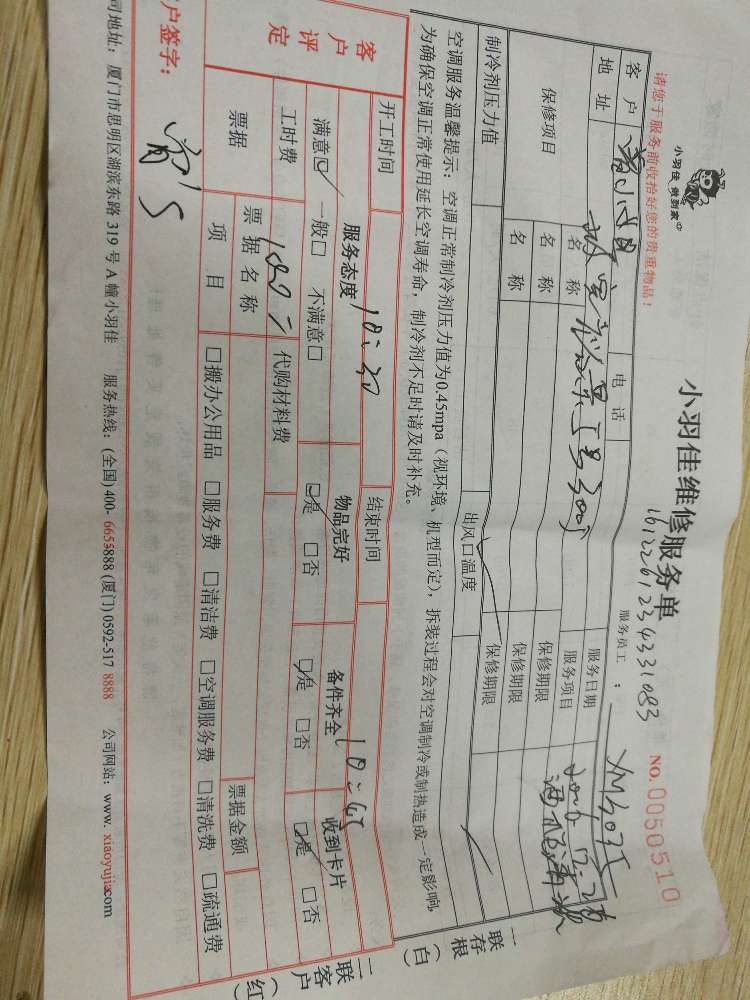 小羽佳 做到家
小羽佳维修服务单
NO.0050510
1612261234331083
请您于服务前收拾好您的贵重物品!
服务员工:
客户
电话
服务日期
地址
服务项目
保修项目
名称
保修期限
名称
保修期限
名称
保修期限
制冷剂压力值
出风口温度
空调服务温馨提示:空调正常制冷剂压力值为0.45mpa(视环境、机型而定),拆装过程会对空调制冷或制热造成一定影响,
为确保空调正常使用延长空调寿命,制冷剂不足时请及时补充。
开工时间 10:30 结束时间 10:45
客户评定
服务态度 物品完好 备件齐全 收到卡片
满意☑ 一般□ 不满意□ ☑是 □否 ☑是 □否 ☑是 □否
工时费 代购材料费
票据
票据名称 票据金额
项目 □搬办公用品 □服务费 □清洁费 □空调服务费 □清洗费 □疏通费
户签字:
司地址:厦门市思明区湖滨东路 319 号 A 幢小羽佳 服务热线:(全国) 400-6655888 (厦门) 0592-517 8888 公司网站:www.xiaoyujia.com
一联存根(白)
二联客户(红)